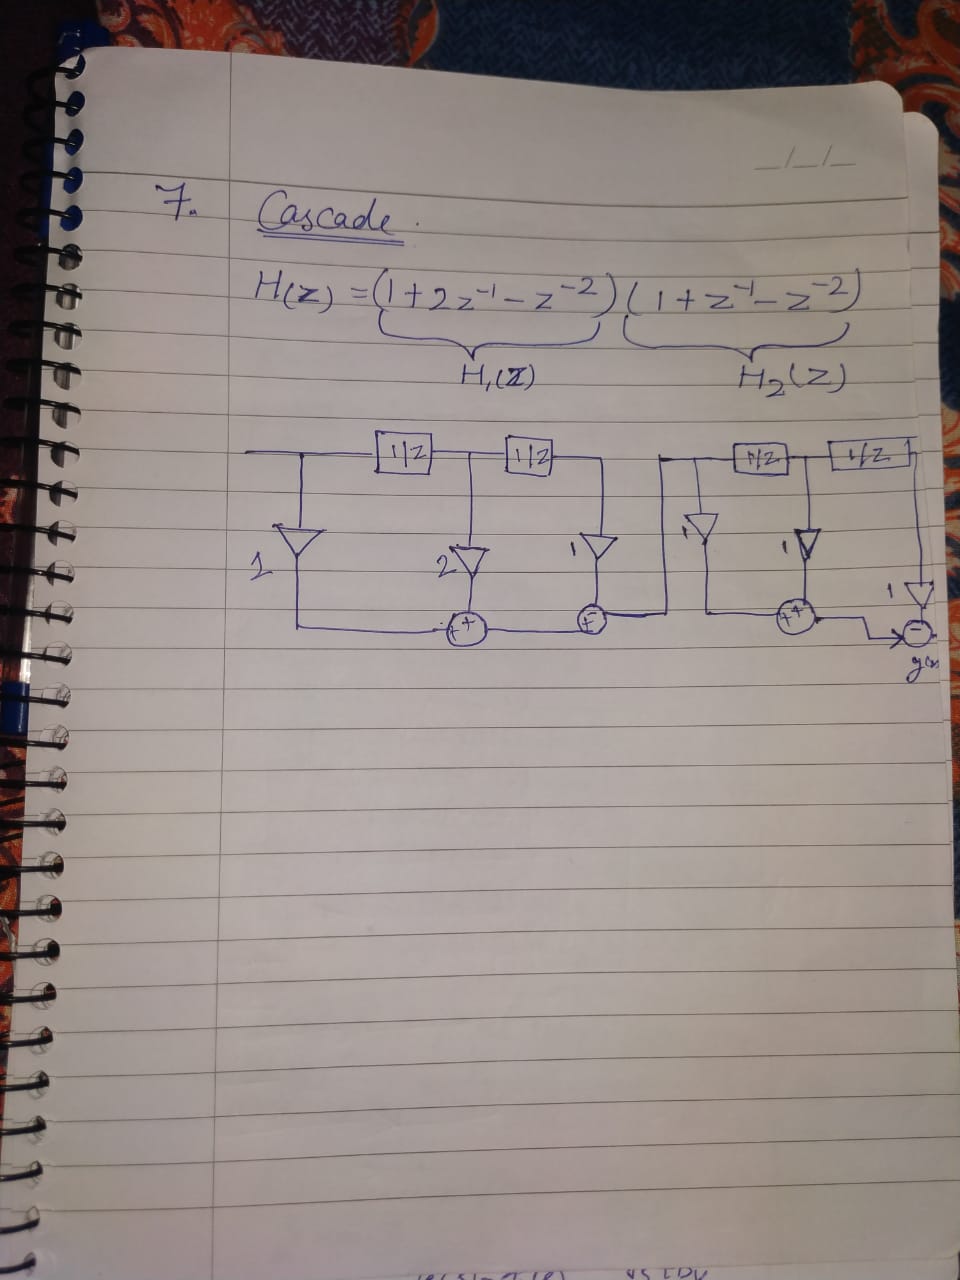 _/_/_
7. Cascade.
H(z) = (1 + 2z⁻¹ - z⁻²) (1 + z⁻¹ - z⁻²)
H₁(z) H₂(z)
1/z 1/z 1/z 1/z
1 2 1 1 1 1
+ + + - + + -